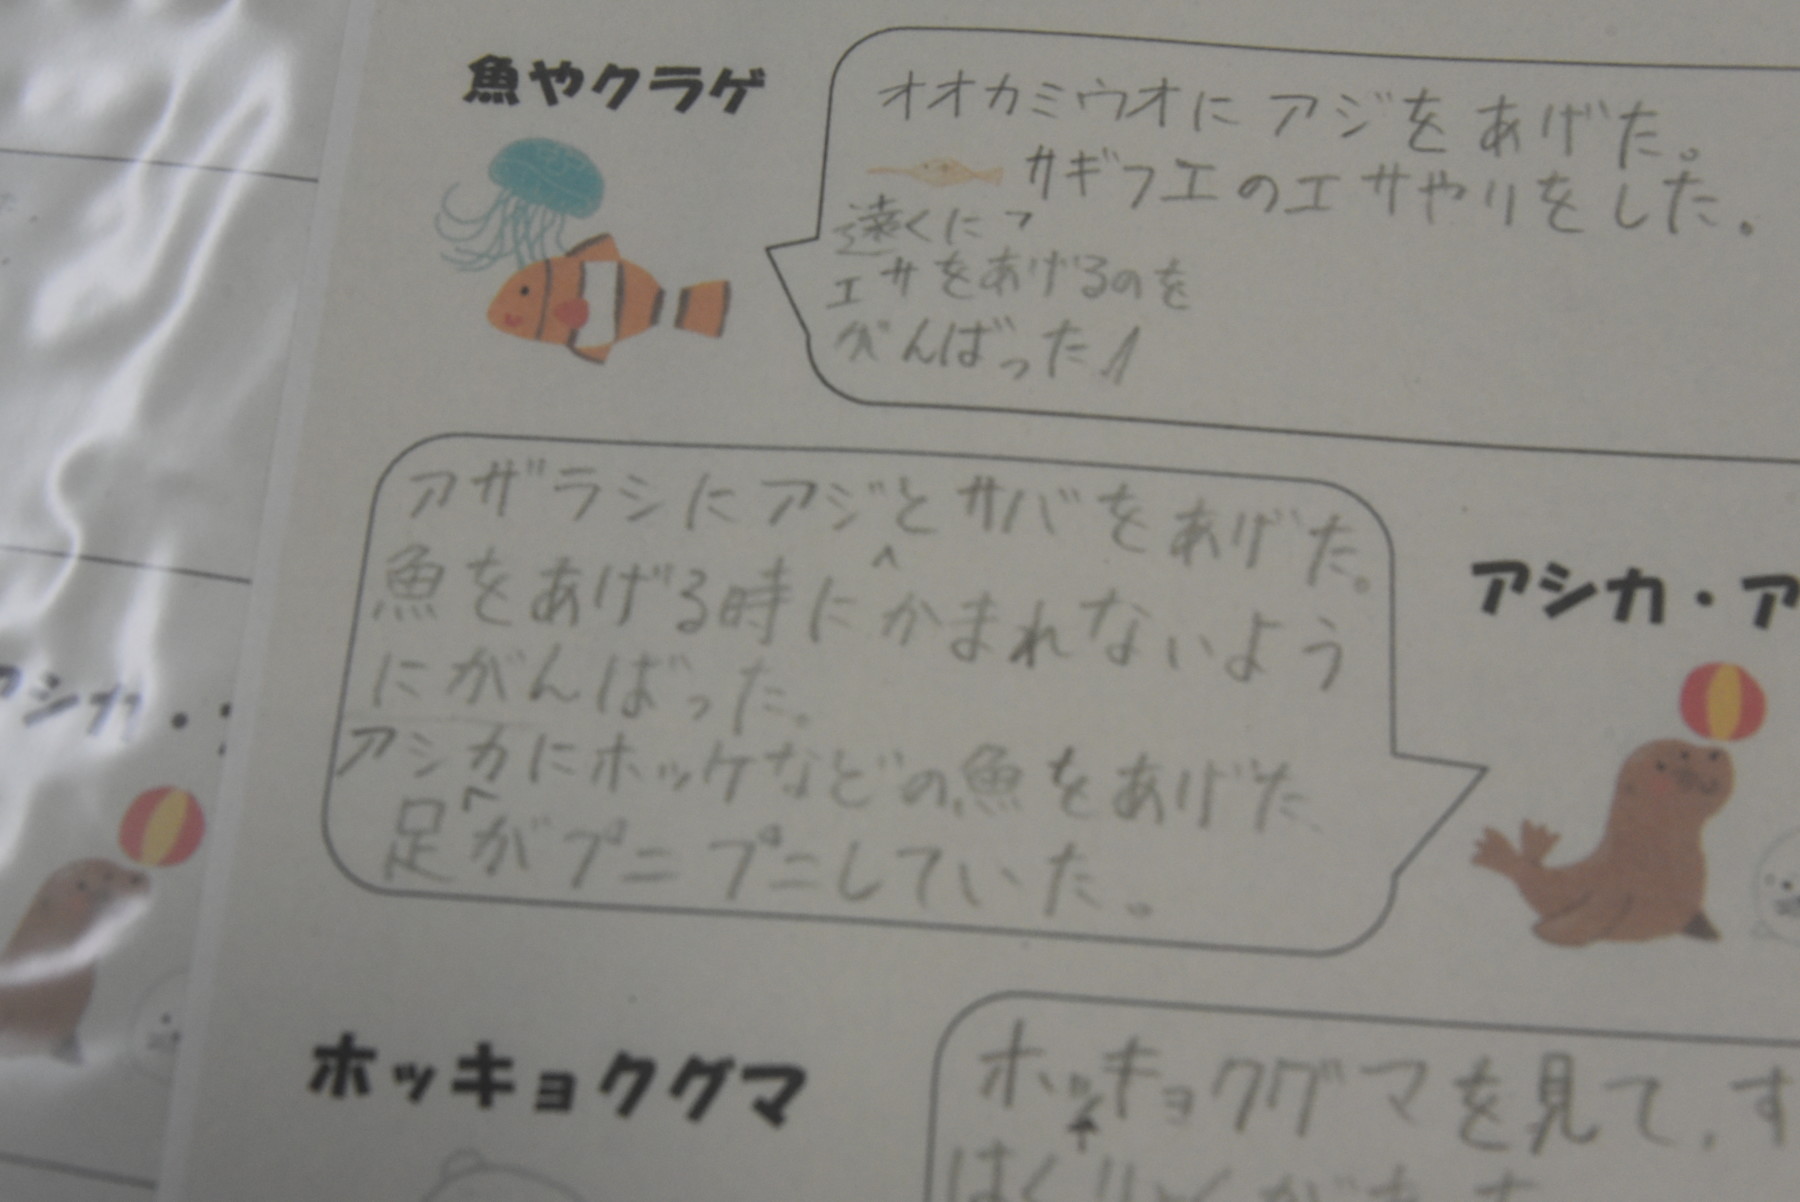 魚やクラゲ
オオカミウオにアジをあげた。
サギフエのエサやりをした。
遠くに
エサをあげるのを
がんばった!
アザラシにアジとサバをあげた。
魚をあげる時にかまれないよう
にがんばった。
アシカにホッケなどの魚をあげた
足がプニプニしていた。
アシカ・ア
アシカ・
ホッキョクグマ
ホッキョクグマを見て、す
はくりょくが